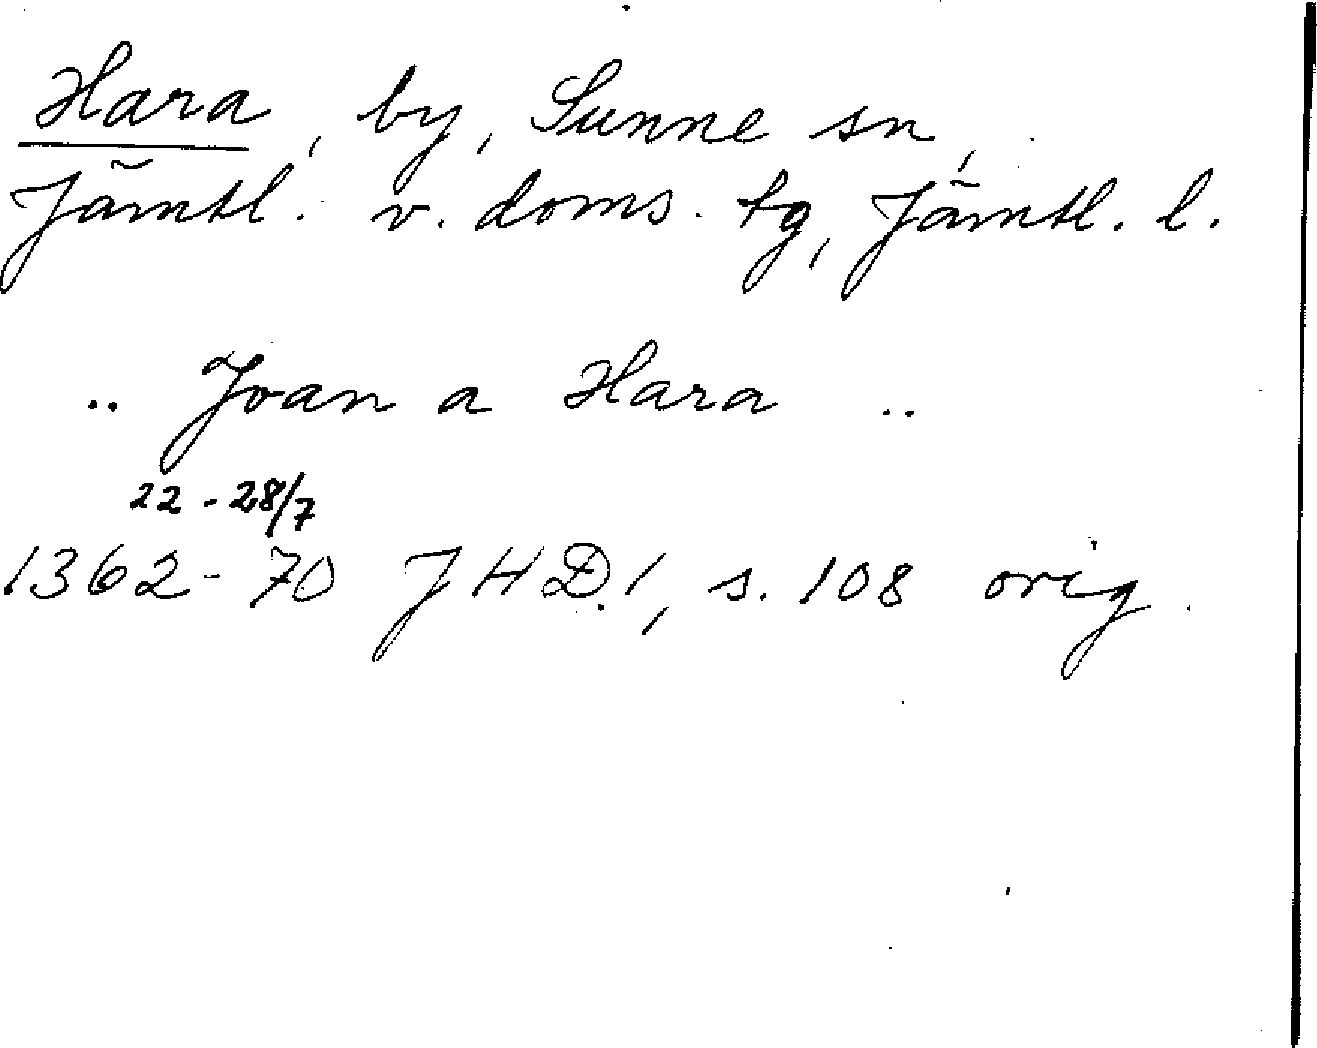 Hara, by, Sunne sn,
Jämtl. v. doms. tg, Jämtl. l.
.. Joan a Hara ..
22-28/7
1362-70 JHD.1, s. 108 orig.